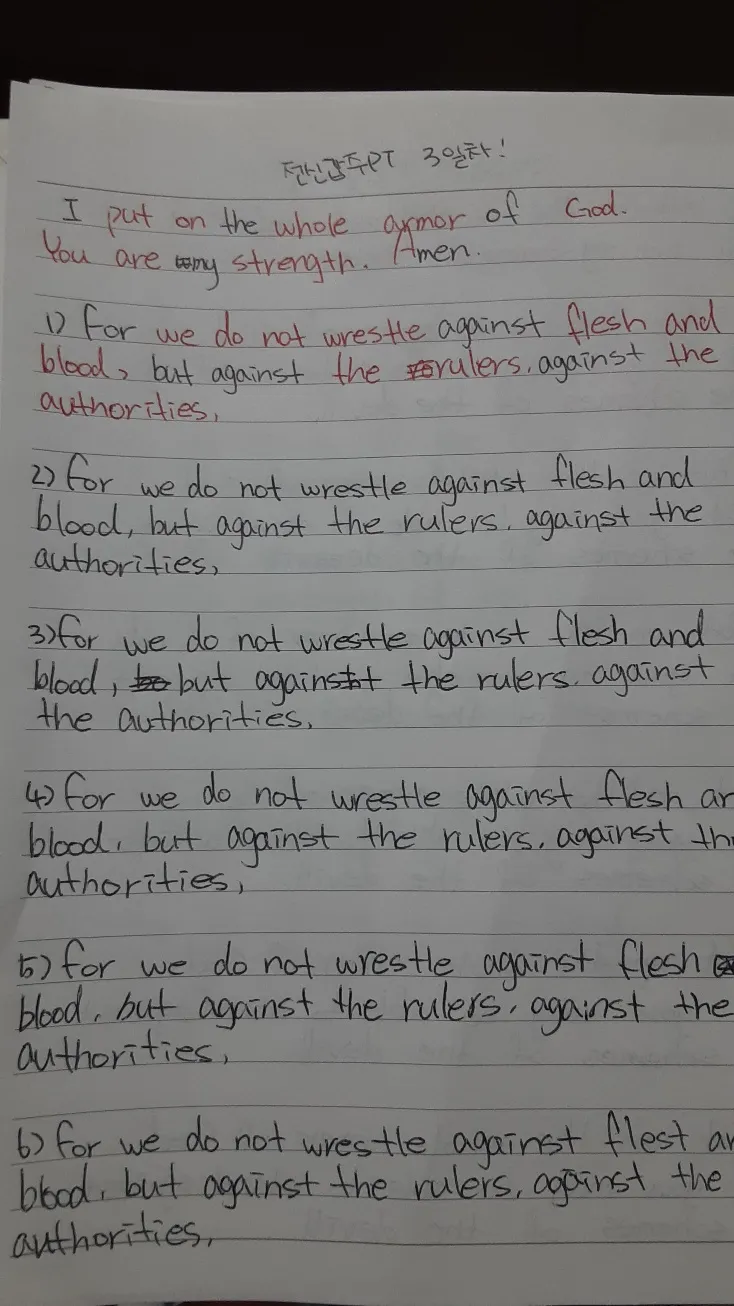 전신갑주PT 3일차!
I put on the whole armor of God.
You are my strength. Amen.
1) For we do not wrestle against flesh and
blood, but against the rulers, against the
authorities,
2) For we do not wrestle against flesh and
blood, but against the rulers, against the
authorities,
3) for we do not wrestle against flesh and
blood, but against the rulers, against
the authorities,
4) for we do not wrestle against flesh
blood, but against the rulers, against
authorities,
5) for we do not wrestle against flesh
blood, but against the rulers, against the
authorities,
6) for we do not wrestle against flest
blood, but against the rulers, against the
authorities,